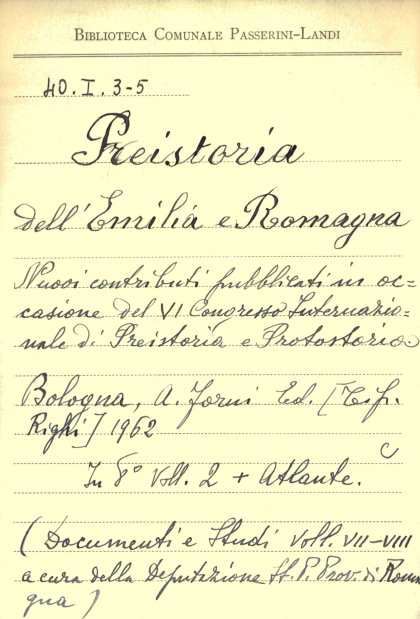 BIBLIOTECA COMUNALE PASSERINI-LANDI
40.I.3-5
Preistoria
dell'Emilia e Romagna
Nuovi contributi pubblicati in oc=
casione del VI Congresso Internazio=
nale di Preistoria e Protostoria
Bologna, A. Forni Ed. [Tip.
Righi] 1962
In 8° Voll. 2 + Atlante.
C
(Documenti e Studi Voll. VII-VIII
a cura della Deputazione St. P. Prov. di Roma
gna)